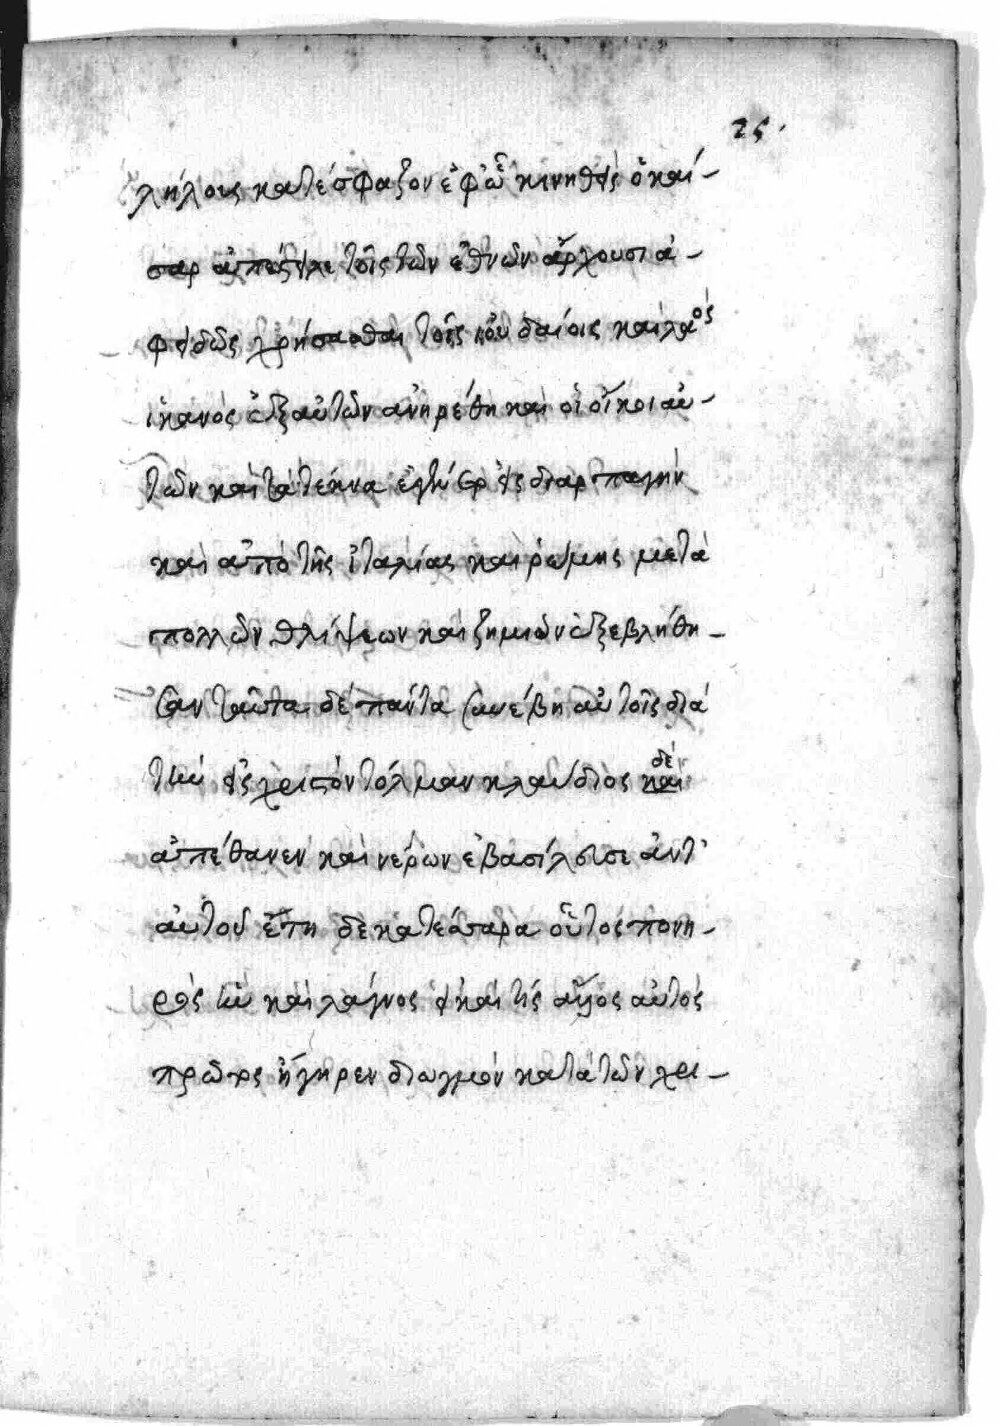 25.
λήλους κατέσφαζον ἐφ' ὧ κινηθεὶς ὁ καῖ-
σαρ ἀπέστειλε τοῖς τῶν ἐθνῶν ἄρχουσι ἀ-
φειδῶς χρήσασθαι τοῖς ἰουδαίοις καὶ λαὸς
ἱκανὸς ἐξ αὐτῶν ἀνηρέθη καὶ οἱ οἶκοι αὐ-
τῶν καὶ τὰ τέκνα εἰς διαρπαγὴν
καὶ ἀπὸ τῆς ἰταλίας καὶ ῥώμης μετὰ
πολλῶν θλίψεων καὶ ζημιῶν ἐξεβλήθη-
σαν ταῦτα δὲ πάντα συνέβη αὐτοῖς διὰ
τὴν εἰς χριστὸν τόλμαν κλαύδιος δὲ καὶ
ἀπέθανεν καὶ νέρων ἐβασίλευσε ἀντ'
αὐτοῦ ἔτη δεκατέσσαρα οὗτος πονη-
ρὸς ἦν καὶ λάγνος εἰ καί τις ἄλλος αὐτὸς
πρῶτος ἤγηρεν διωγμὸν κατὰ τῶν χρι-